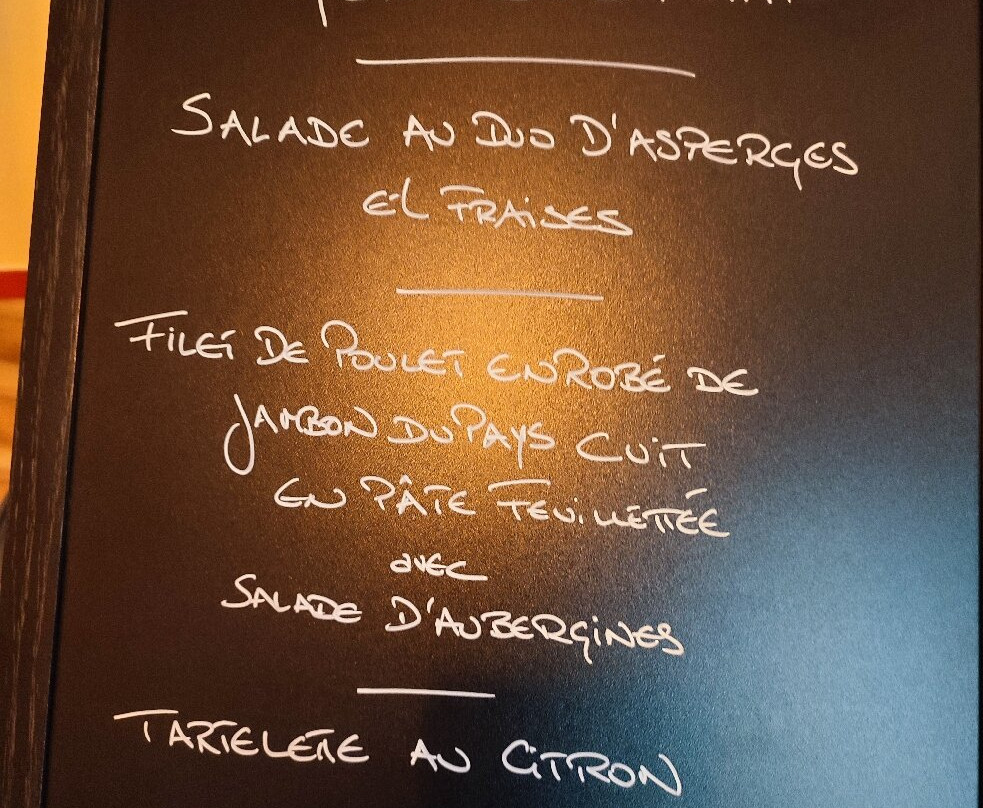 SALADE AU DUO D'ASPERGES
ET FRAISES
FILET DE POULET ENROBÉ DE
JAMBON DU PAYS CUIT
EN PÂTE FEUILLETTÉE
avec
SALADE D'AUBERGINES
TARTELETTE AU CITRON